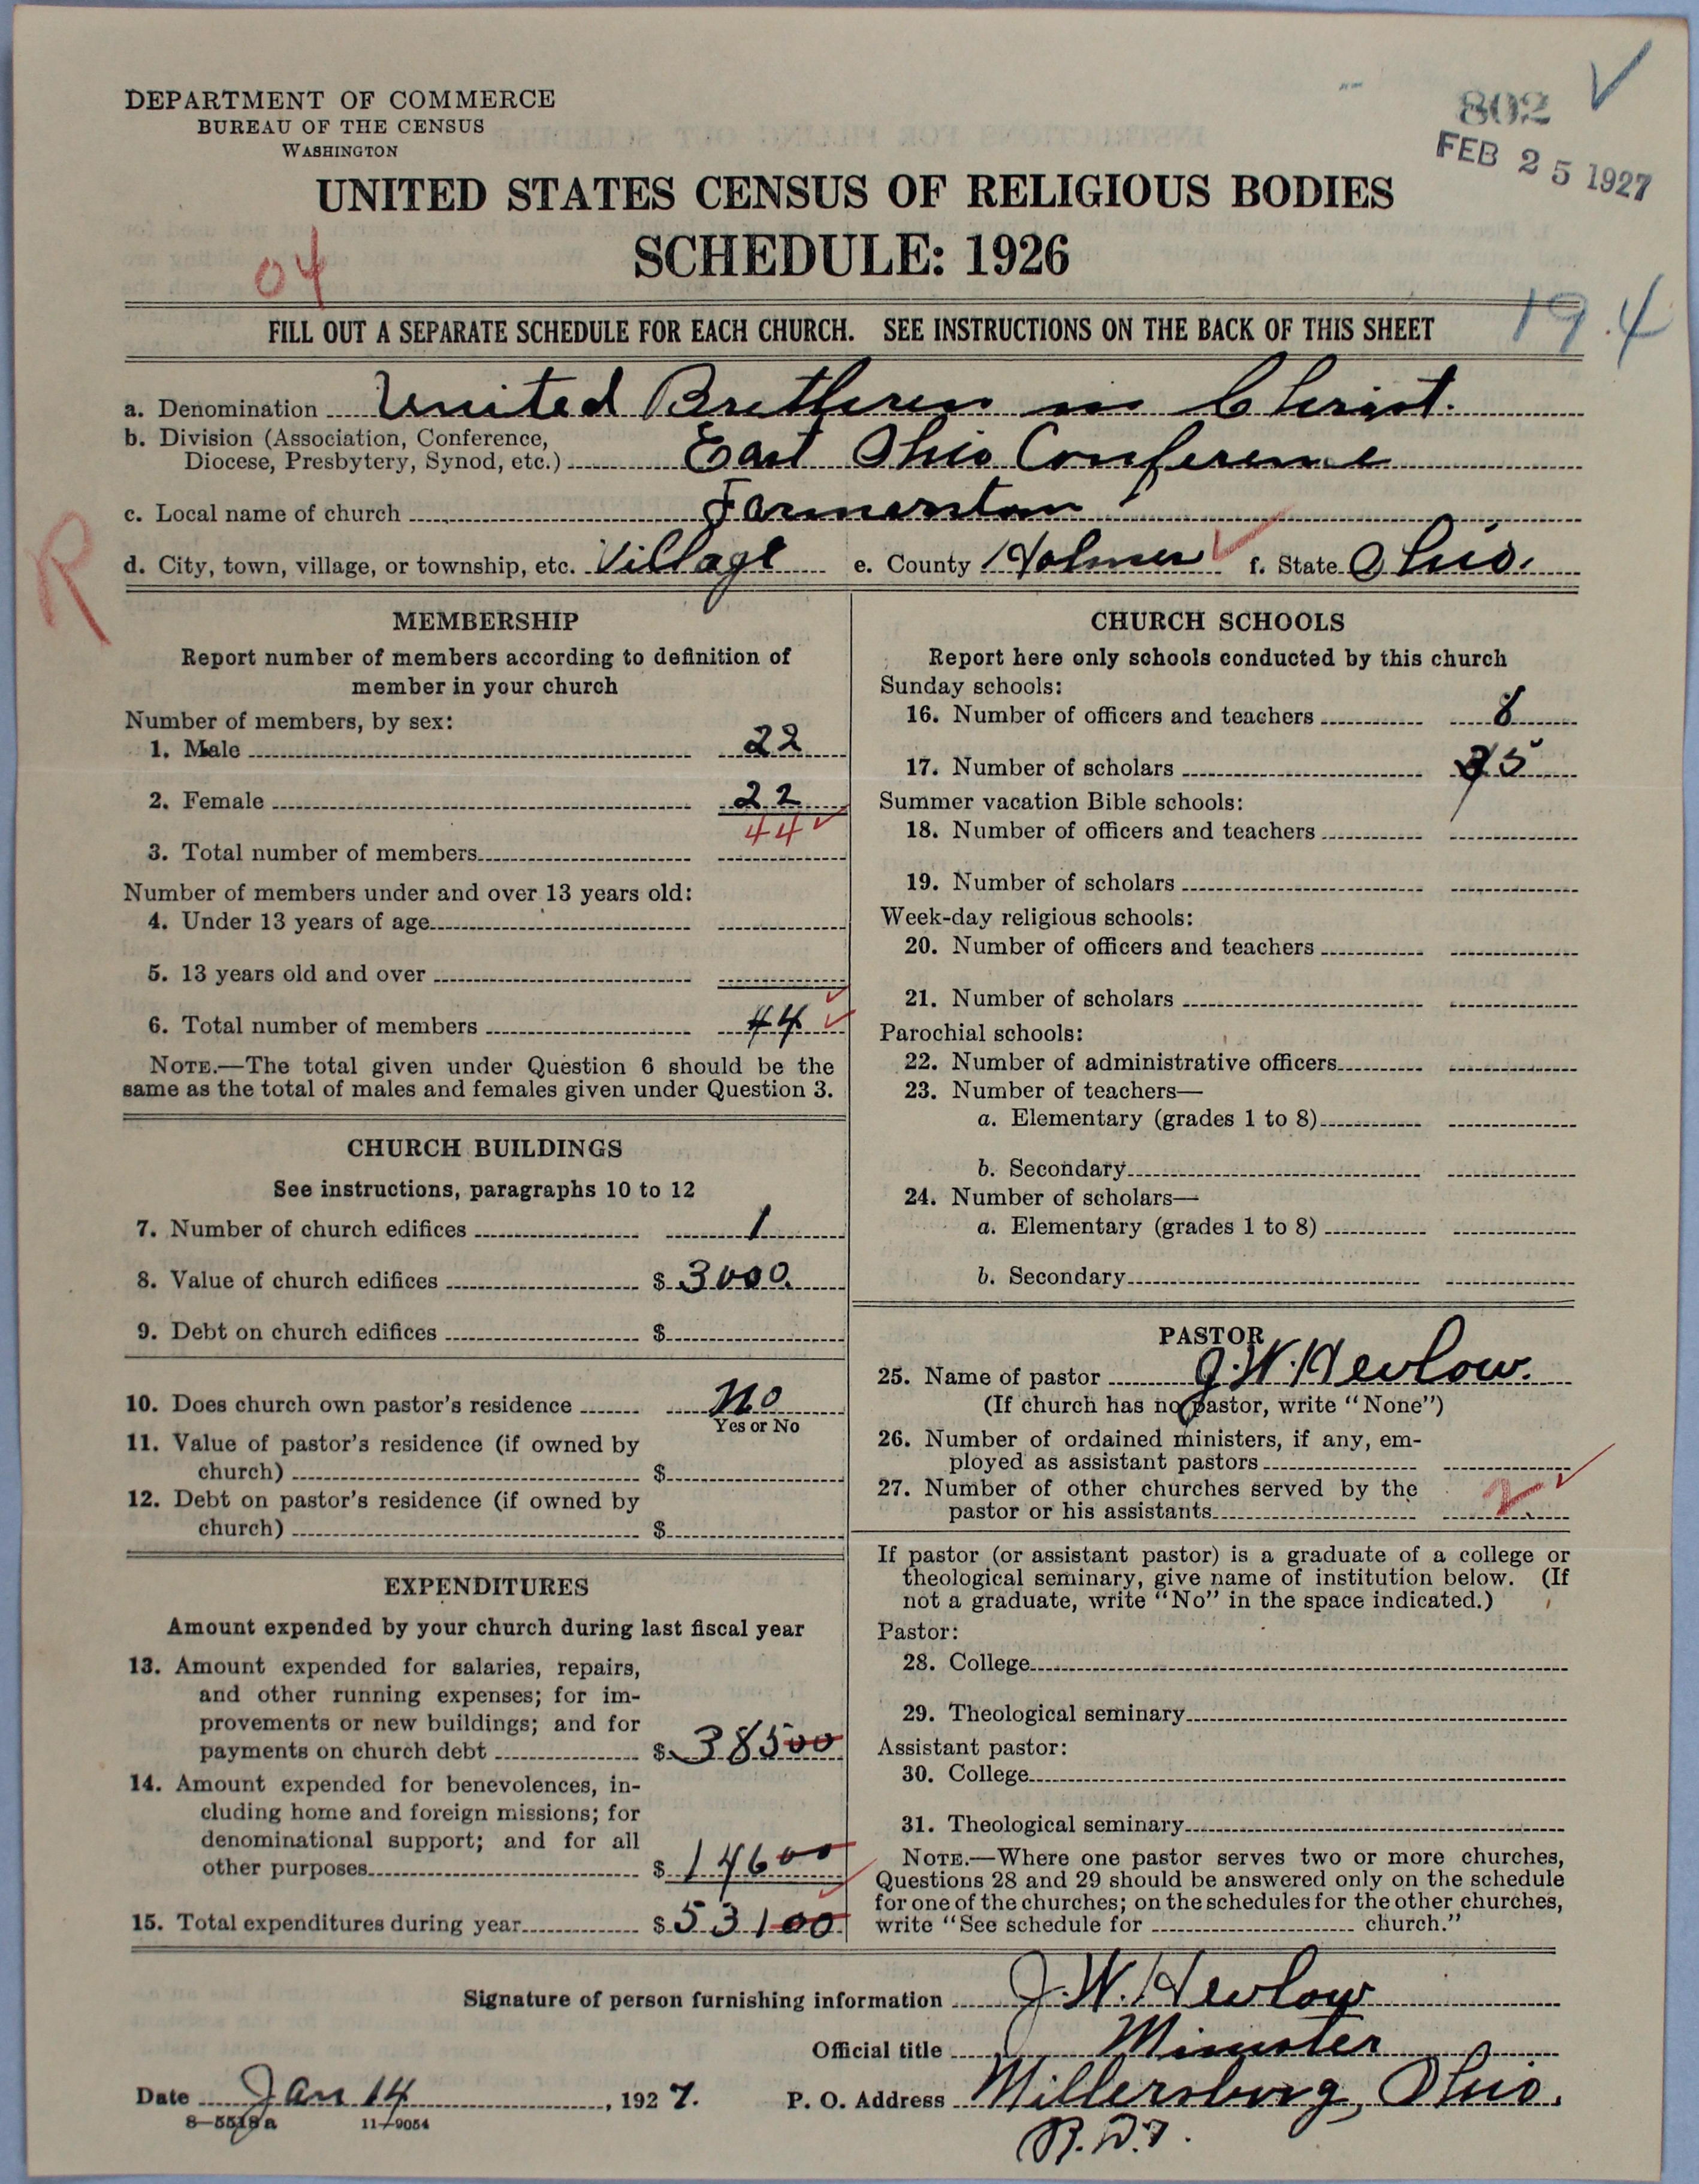 DEPARTMENT OF COMMERCE
BUREAU OF THE CENSUS
WASHINGTON
802 ✓
FEB 25 1927
UNITED STATES CENSUS OF RELIGIOUS BODIES
SCHEDULE: 1926
04
19.4
FILL OUT A SEPARATE SCHEDULE FOR EACH CHURCH. SEE INSTRUCTIONS ON THE BACK OF THIS SHEET
a. Denomination United Brethren in Christ.
b. Division (Association, Conference,
Diocese, Presbytery, Synod, etc.) East Ohio Conference
c. Local name of church Farmerstown
R
d. City, town, village, or township, etc. Village e. County Holmes ✓ f. State Ohio.
MEMBERSHIP
Report number of members according to definition of
member in your church
Number of members, by sex:
1. Male 22
2. Female 22
44 ✓
3. Total number of members
Number of members under and over 13 years old:
4. Under 13 years of age
5. 13 years old and over
6. Total number of members 44 ✓
NOTE.—The total given under Question 6 should be the
same as the total of males and females given under Question 3.
CHURCH BUILDINGS
See instructions, paragraphs 10 to 12
7. Number of church edifices 1
8. Value of church edifices $ 3000.
9. Debt on church edifices $
10. Does church own pastor's residence No
Yes or No
11. Value of pastor's residence (if owned by
church) $
12. Debt on pastor's residence (if owned by
church) $
EXPENDITURES
Amount expended by your church during last fiscal year
13. Amount expended for salaries, repairs,
and other running expenses; for im-
provements or new buildings; and for
payments on church debt $ 38500
14. Amount expended for benevolences, in-
cluding home and foreign missions; for
denominational support; and for all
other purposes $ 14600
15. Total expenditures during year $ 53100
CHURCH SCHOOLS
Report here only schools conducted by this church
Sunday schools:
16. Number of officers and teachers 8
17. Number of scholars
Summer vacation Bible schools:
18. Number of officers and teachers
19. Number of scholars
Week-day religious schools:
20. Number of officers and teachers
21. Number of scholars
Parochial schools:
22. Number of administrative officers
23. Number of teachers—
a. Elementary (grades 1 to 8)
b. Secondary
24. Number of scholars—
a. Elementary (grades 1 to 8)
b. Secondary
PASTOR
25. Name of pastor J. W. Hevlow.
(If church has no pastor, write "None")
26. Number of ordained ministers, if any, em-
ployed as assistant pastors
27. Number of other churches served by the
pastor or his assistants 2 ✓
If pastor (or assistant pastor) is a graduate of a college or
theological seminary, give name of institution below. (If
not a graduate, write "No" in the space indicated.)
Pastor:
28. College
29. Theological seminary
Assistant pastor:
30. College
31. Theological seminary
NOTE.—Where one pastor serves two or more churches,
Questions 28 and 29 should be answered only on the schedule
for one of the churches; on the schedules for the other churches,
write "See schedule for church."
Signature of person furnishing information J. W. Hevlow
Official title Minister
Date Jan 14, 1927. P. O. Address Millersburg, Ohio.
8—5518a 11—9054